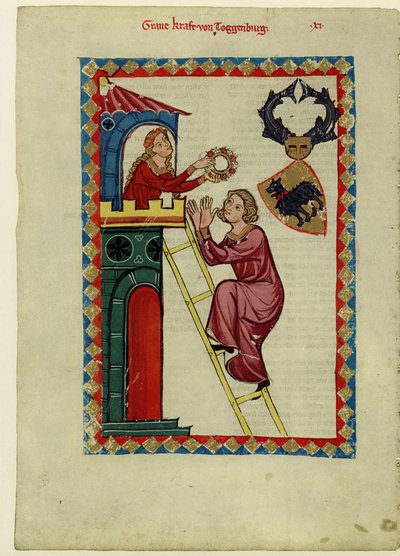 Graue kraft von Toggenburg.
.XI.